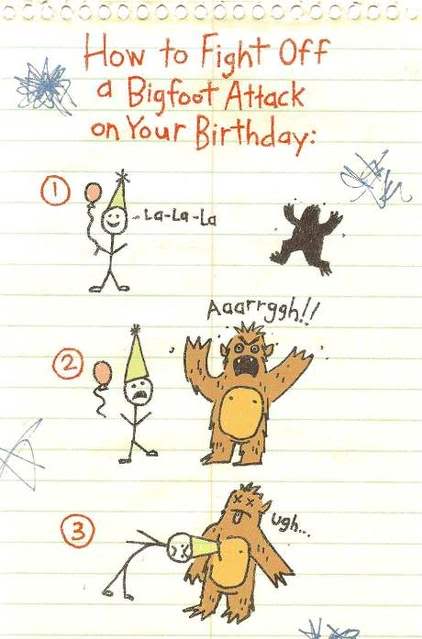 How to Fight Off
a Bigfoot Attack
on Your Birthday:
1
-La-La-La
Aaarrggh!!
2
3
ugh...